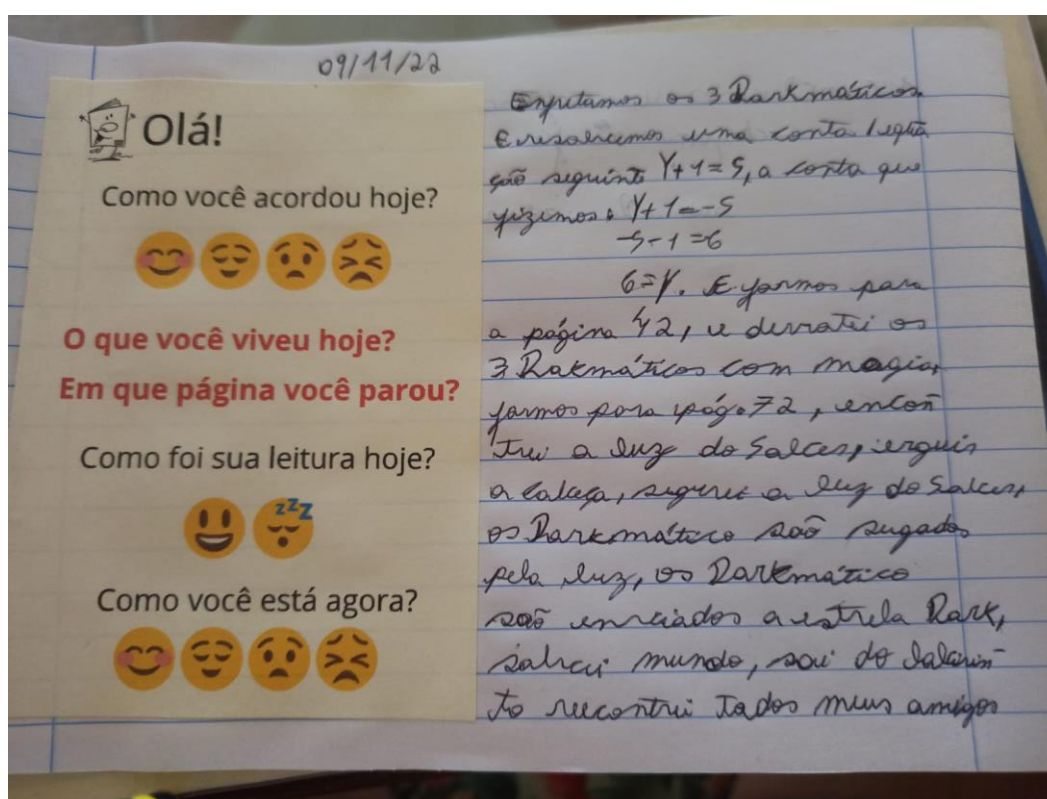 09/11/22
Olá!
Como você acordou hoje?
O que você viveu hoje?
Em que página você parou?
Como foi sua leitura hoje?
zzz
Como você está agora?
os 3 Darkmáticos
E resolvemos uma conta
ção seguinte Y+1=5, a conta que
fizemos: Y+1=-5
-5-1=6
6=Y. E formos para
a página 42, e derrotei os
3 Dakmáticos com magia,
formos para pág. 72, encon
trei a luz do Salces, erguir
a cabeça, segurei a luz do Salces,
os Darkmático são sugados
pela luz, os Darkmático
são enviados a estrela Dark,
salvei mundo, sai do labirin
to recontrei todos meus amigos